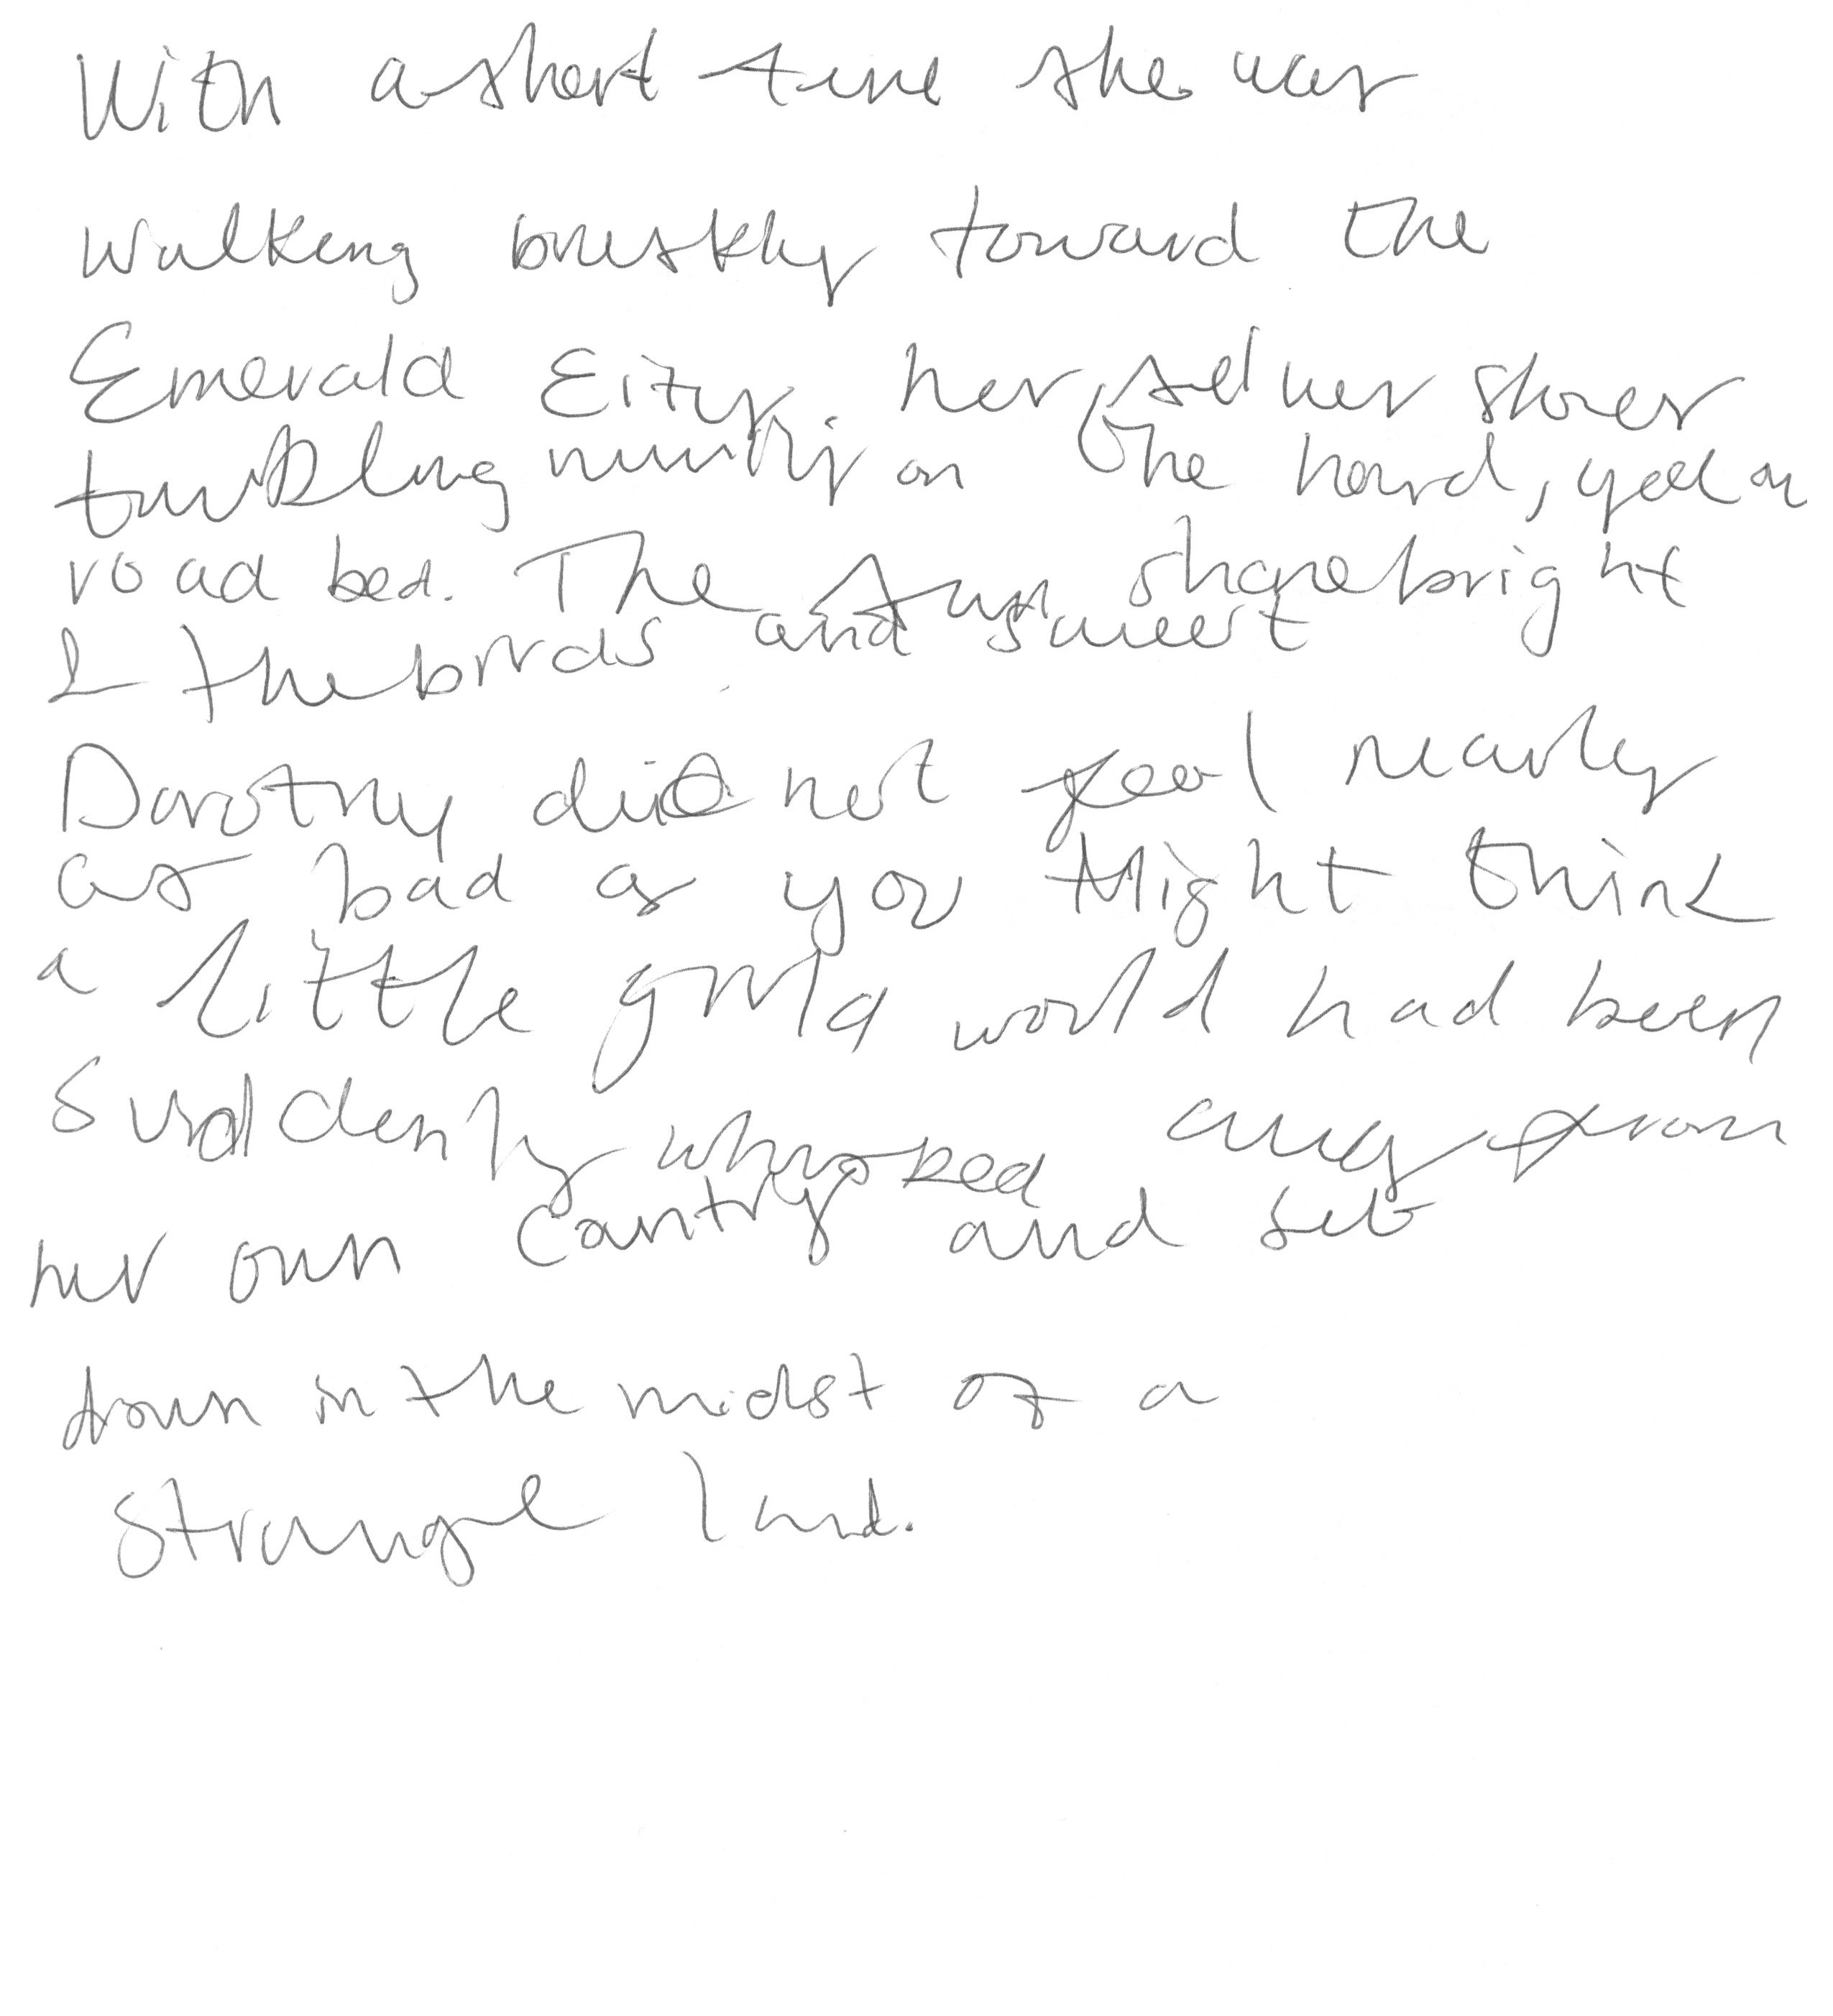 With a short time she was
walking briskly toward the
Emerald City, her silver shoes
tinkling on the hard, yellow
road bed. The sun shone bright
& the birds and sweet
Dorothy did not feel nearly
as bad as you might think
a little girl would had been
suddenly whisked away from
her own country and set
down in the midst of a
strange land.